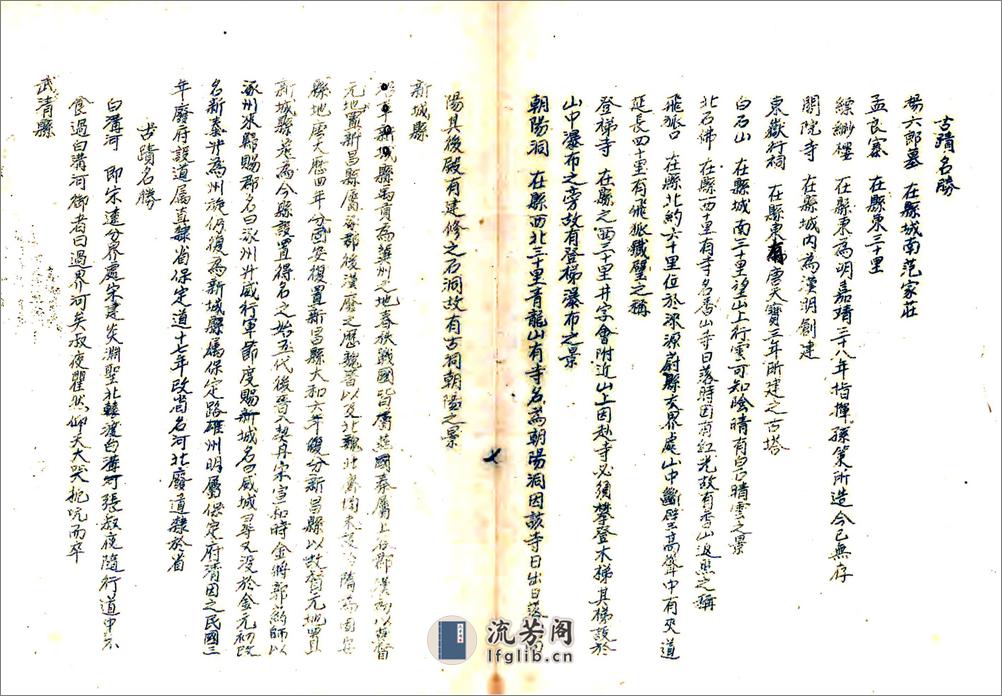 古蹟名勝
楊六郎墓 在縣城南范家莊
孟良寨 在縣東三十里
縹緲樓 在縣東為明嘉靖三十八年指揮孫策所造今已無存
閣院寺 在縣城內為漢明創建
東嶽行祠 在縣東 唐天寶三年所建之古塔
白石山 在縣城南三十里望山上行雲可知陰晴有白石晴雲之景
北石佛 在縣西十里有寺名香山寺日落時因有紅光故有香山返照之稱
飛狐口 在縣北約六十里位於淶源蔚縣交界處山中斷壁高聳中有夾道
延長四十里有飛狐鐵壁之稱
登梯寺 在縣之西三十里井字會附近山上因赴寺必須攀登木梯其梯設於
山中瀑布之旁故有登梯瀑布之景
朝陽洞 在縣西北三十里青龍山有寺名為朝陽洞因該寺日出日落
陽其後殿有建修之石洞故有古洞朝陽之景
新城縣
新城縣禹貢為冀州之地春秋戰國皆屬燕國秦屬上谷郡漢初以故督
亢地置新昌縣屬涿郡後漢廢之歷魏晉以及北魏北齊 隋為固安
縣地唐大歷四年分固安復置新昌縣大和六年復分新昌縣以故督亢地置
新城縣是為今縣設置得名之始五代後晉入契丹宋宣和時金將郭藥師以
涿州來歸賜郡名曰涿州升威行軍節度賜新城名曰威城尋又沒於金元初改
名新泰升為州旋仍復為新城縣屬保定路雄州明屬保定府清因之民國三
年廢府設道屬直隸省保定道十七年改省名河北廢道隸於省
古蹟名勝
白溝河 即宋遼分界處宋建炎淵聖北轅渡白溝河張叔夜隨行道中不
食過白溝河御者曰過界河矣叔夜瞿然仰天大哭扼吭而卒
武清縣
七
流芳阁
lfglib.cn